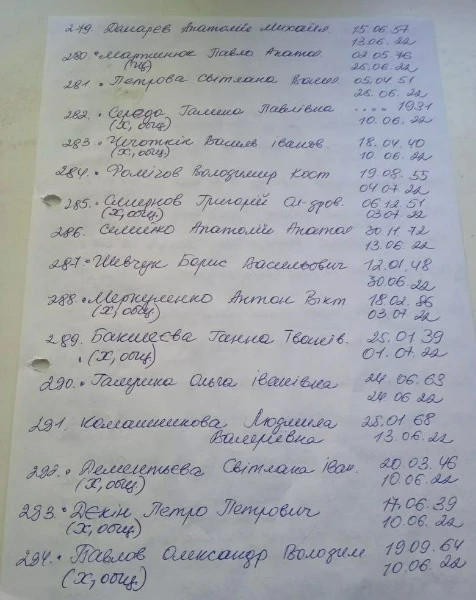 279. Дегтарев Анатолій Михайл. 15.06.57
13.06.22
280. Мартинюк Павло Анатол. 02.05.76
(гц) 25.06.22
281. Петрова Світлана Волод. 05.04 51
25.06.22
282. Середа Галина Павлівна .... 1931
(Х, общ) 10.06.22
283. Чіготкін Василь Іванов. 18.04.40
(Х, общ) 10.06.22
284. Фомічов Володимир Кост 19.08.55
04.07.22
285. Смирнов Григорій Ол-дров. 06.12.51
(Х, общ) 03.07.22
286. Семенко Анатолій Анатол 30.11.72
13.06.22
287. Шевчук Борис Васильович 12.01.48
30.06.22
288. Антон Вікт 18.02.86
(Х, общ) 03.07.22
289. Бакшеєва Ганна Іванів. 25.01 39
(Х, общ) 01.07.22
290. Ольга Іванівна 24.06.63
24.06 22
291. Калашникова Людмила 25.01 68
Валеріївна 13.06.22
292. Дементьєва Світлана Іван. 20.03.46
(Х, общ) 10.06.22
293. Дєкін Петро Петрович 17.06.39
(Х, общ) 10.06.22
294. Павлов Олександр Володим 19.09.64
(Х, общ) 10.06.22